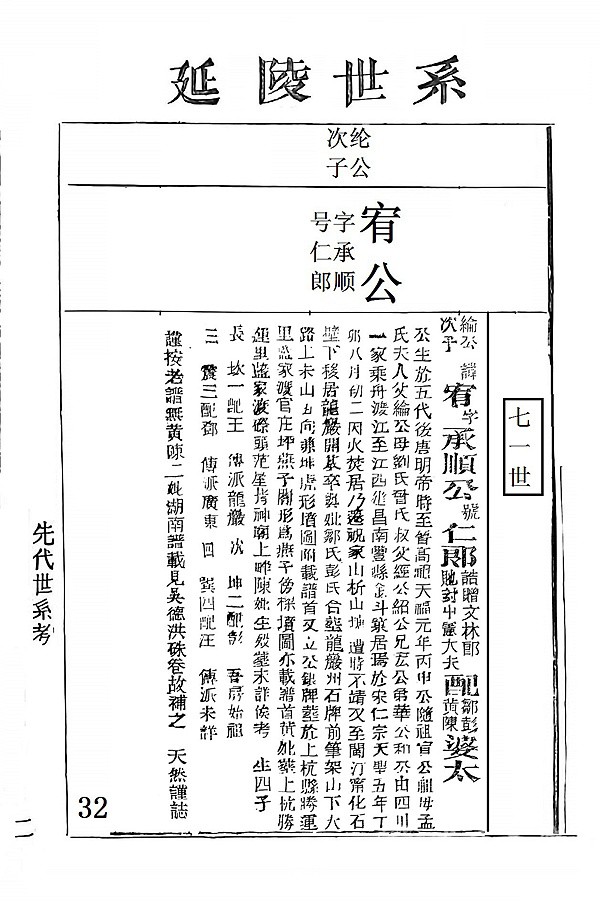 延陵世系
七一世
綸公次子
諱宥字承順公號仁郎誥贈文林郎馳封中憲大夫配鄒彭黄陳婆太
纶公次子
宥公
字承顺
号仁郎
公生於五代後唐明帝時至晉高祖天福元年丙申公隨祖官公祖母孟
氏夫人父綸公母劉氏晉氏叔父經公紹公兄宏公弟華公和公由四川
一家乘舟渡江至江西建昌南豐縣金斗築居焉於宋仁宗天聖五年丁
卯八月初二因火焚居乃遷祝家山析山塘遭時不靖又至閩汀甯化石
壁下移居龍巖開基卒與妣鄒氏彭氏合塟龍巖州石牌前筆架山下大
路上未山丑向兼坤虎形墳圖附載譜首又立公銀牌塟於上杭縣勝運
里盧家渡官庄坪燕子閣形爲燕子傍樑墳圖亦載譜首黄妣塟上杭勝
運里盧家渡磜頭范屋背神廟上畔陳妣生殁塟未詳俟考 生四子
長 坎一配王 傳派龍巖 次 坤二配彭 吾房始祖
三 震三配鄧 傳派廣東 四 巽四配汪 傳派未詳
謹按老譜無黄陳二妣湖南譜載見吴德洪硃卷故補之 天然謹誌
先代世系考
32
二